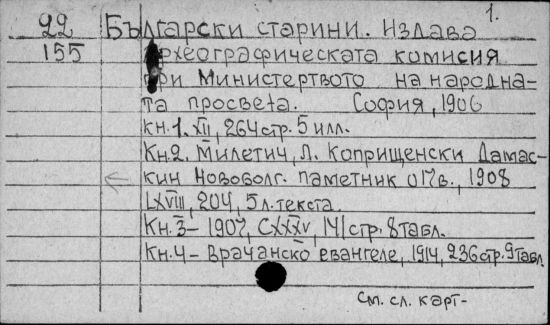 1.
22 Български старини. Издава
155 Археографическата комисия
при Министертвото на народна-
та просвета. София, 1906
кн.1. XII, 264 стр. 5 илл.
Кн.2. Милетич, Л. Коприщенски Дамас-
кин Новоболг. паметник о17в., 1908
LXVIII, 204, 5 л. текста.
Кн.3 – 1907, CXXXV, 141 стр. 8 табл.
Кн.4 – Врачанско евангеле, 1914, 236 стр. 9 табл.
См. сл. карт-